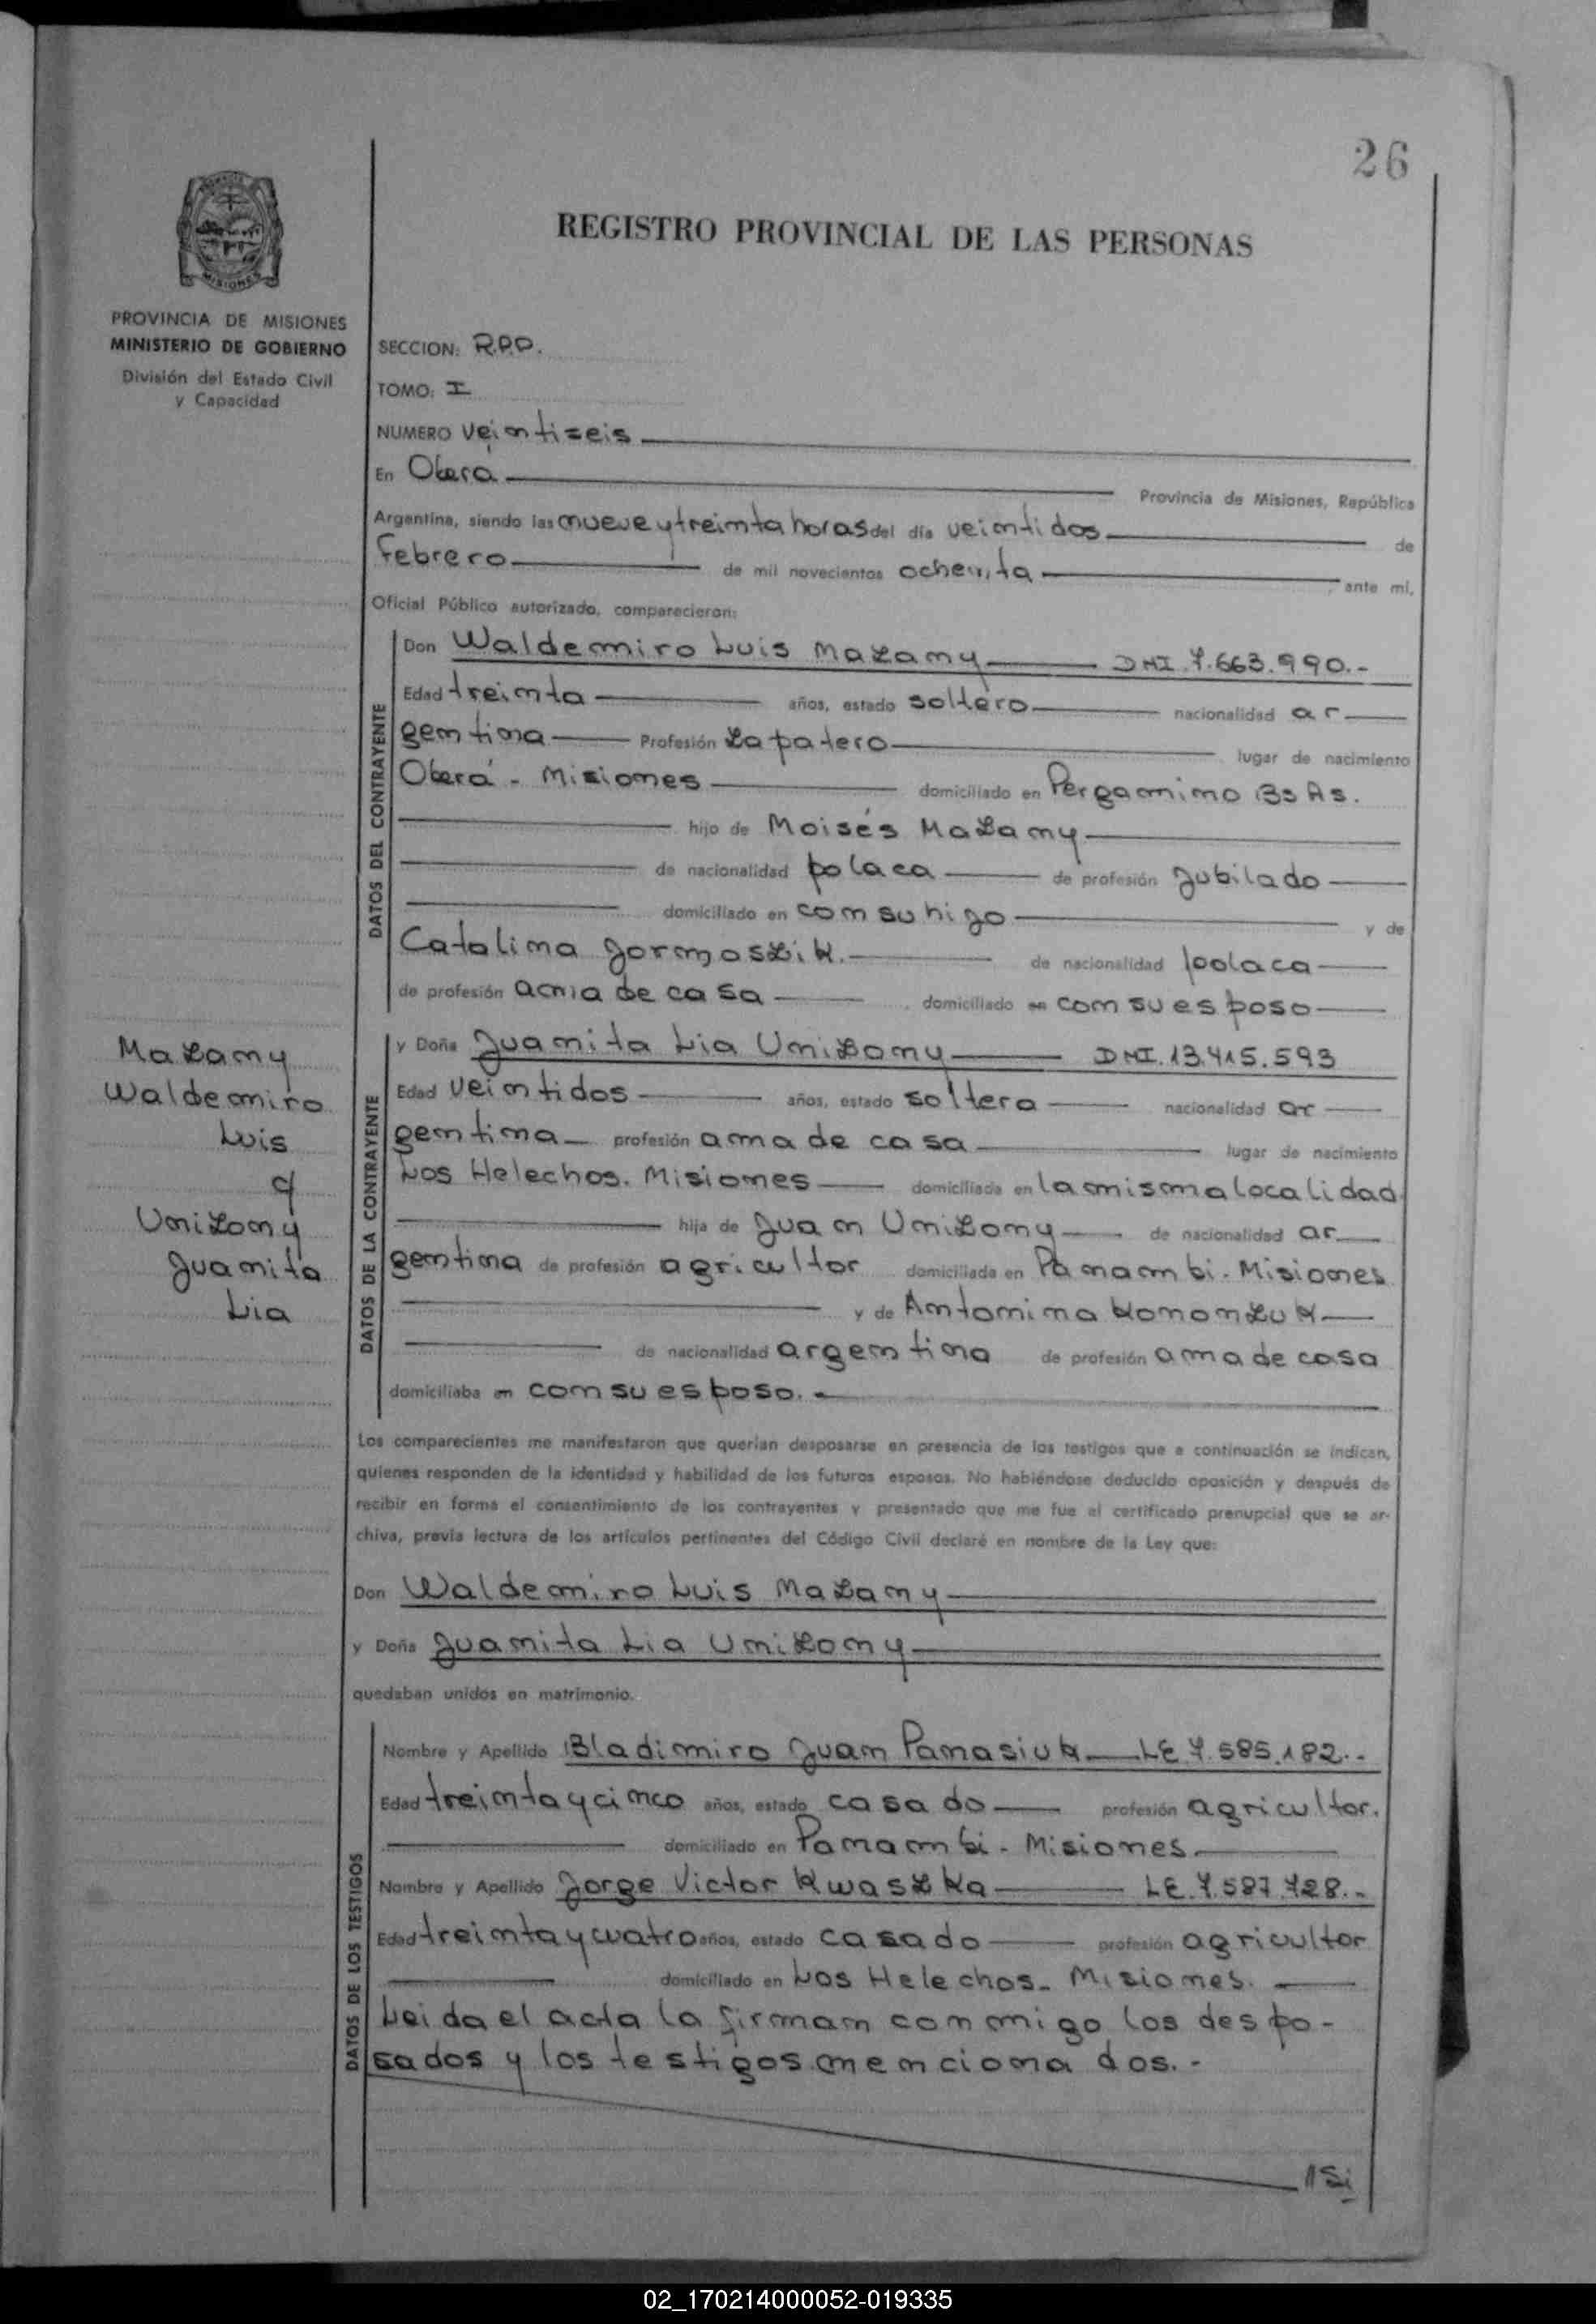 26
REGISTRO PROVINCIAL DE LAS PERSONAS
MISIONES
PROVINCIA DE MISIONES
MINISTERIO DE GOBIERNO
División del Estado Civil
y Capacidad
SECCION: R.P.P.
TOMO: I
NUMERO veintiseis
En Oberá Provincia de Misiones, República
Argentina, siendo las nueve y treinta horas del día veintidos de
Febrero de mil novecientos ochenta ante mí,
Oficial Público autorizado, comparecieron:
DATOS DEL CONTRAYENTE
Don Waldemiro Luis Mazany DNI. 7.663.990.-
Edad treinta años, estado soltero nacionalidad ar
gentina Profesión Zapatero lugar de nacimiento
Oberá - Misiones domiciliado en Pergamino Bs As.
hijo de Moisés Mazany
de nacionalidad polaca de profesión Jubilado
domiciliado en con su hijo y de
Catalina de nacionalidad polaca
de profesión ama de casa domiciliado en con su esposo
Mazany
Waldemiro
Luis
c/
Unizony
Juanita
Lia
DATOS DE LA CONTRAYENTE
y Doña Juanita Lia Unizony DNI. 13.415.593
Edad veintidos años, estado soltera nacionalidad ar
gentina profesión ama de casa lugar de nacimiento
Los Helechos. Misiones domiciliada en la misma localidad
hija de Juan Unizony de nacionalidad ar
gentina de profesión agricultor domiciliada en Panambi - Misiones
y de Antonina Kononzuk
de nacionalidad argentina de profesión ama de casa
domiciliaba en con su esposo.
Los comparecientes me manifestaron que querían desposarse en presencia de los testigos que a continuación se indican,
quienes responden de la identidad y habilidad de los futuros esposos. No habiéndose deducido oposición y después de
recibir en forma el consentimiento de los contrayentes y presentado que me fue el certificado prenupcial que se ar-
chiva, previa lectura de los artículos pertinentes del Código Civil declaré en nombre de la Ley que:
Don Waldemiro Luis Mazany
y Doña Juanita Lia Unizony
quedaban unidos en matrimonio.
DATOS DE LOS TESTIGOS
Nombre y Apellido Bladimiro Juan Panasiuk LE 7.585.182.-
Edad treinta y cinco años, estado casado profesión agricultor.
domiciliado en Panambi - Misiones
Nombre y Apellido Jorge Victor Kwaszka LE. 7.587.728.-
Edad treinta y cuatro años, estado casado profesión agricultor
domiciliado en Los Helechos - Misiones.
Leida el acta la firman conmigo los despo-
sados y los testigos mencionados.-
//Si
02_170214000052-019335